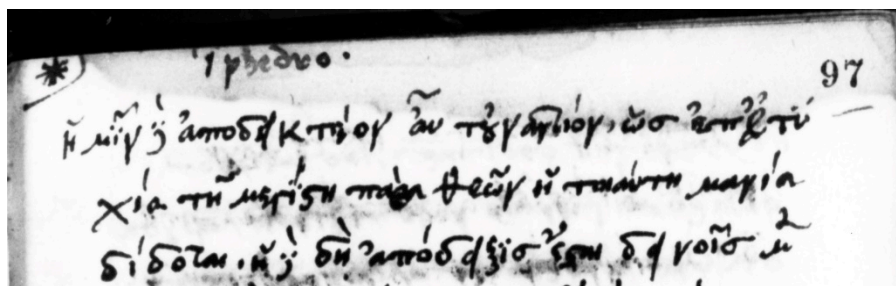 * 'l phedro. 97
ἡμῖν δὲ ἀποδεικτέον αὖ τοὐναντίον, ὡς ἐπ' εὐτυ
χία τῆ μεγίστη παρὰ θεῶν ἡ τοιαύτη μανία
δίδοται. ἡ δὲ δὴ ἀπόδειξϊς ἔσται δεινοῖς μὲν